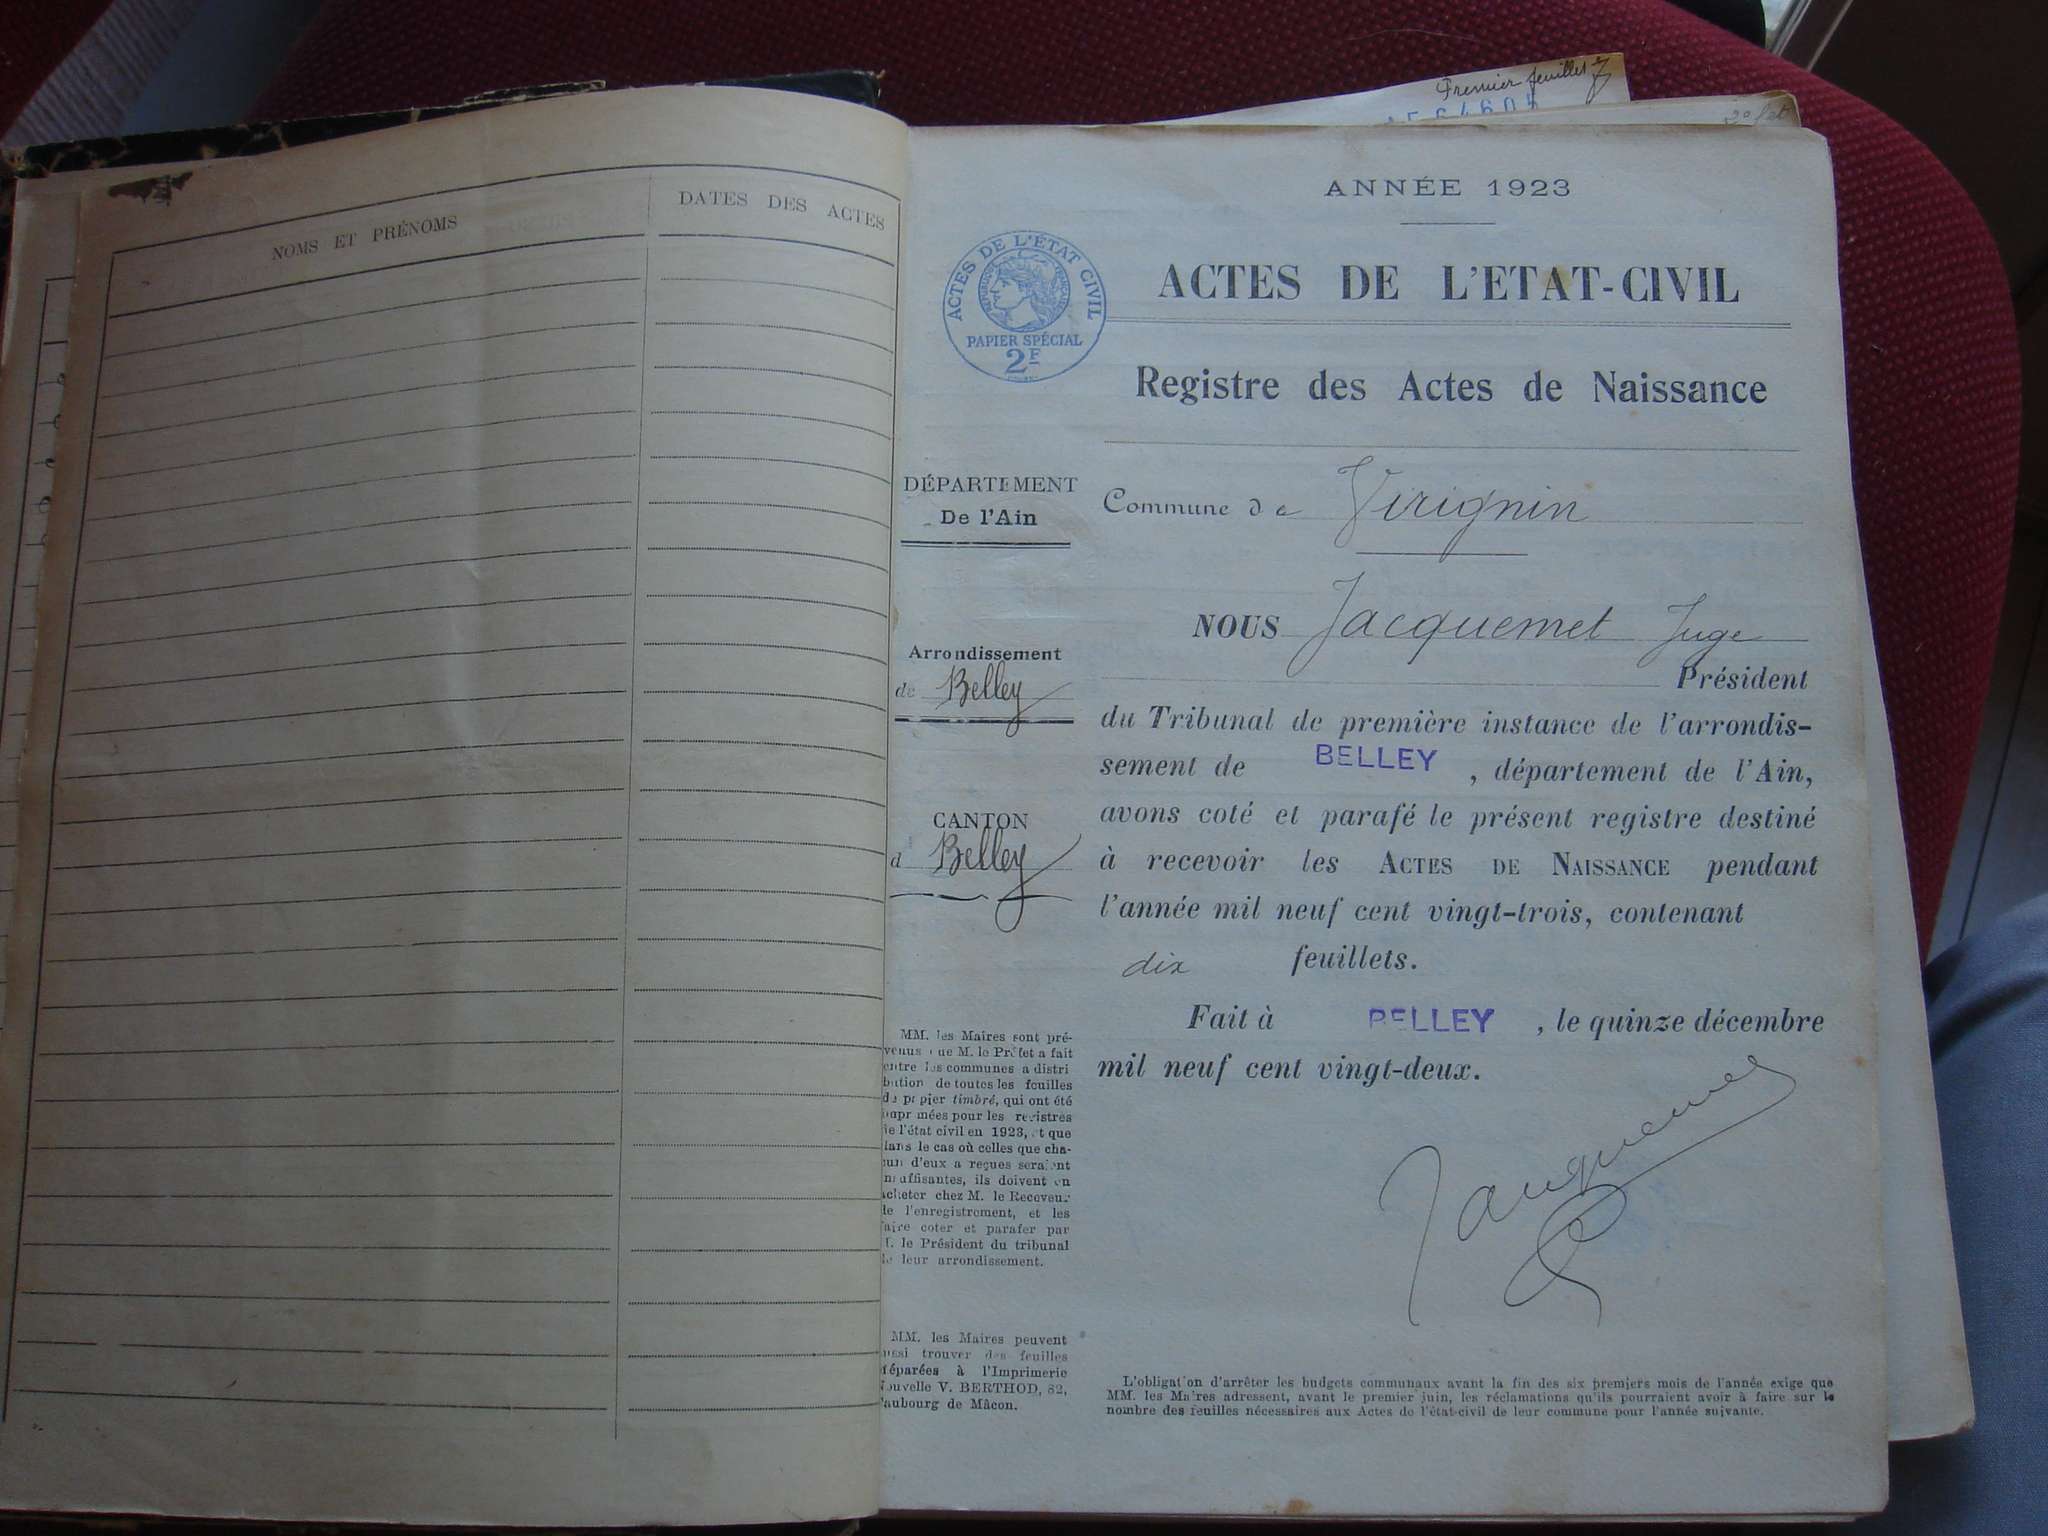 NOMS ET PRÉNOMS
DATES DES ACTES
Premier feuillet
ANNÉE 1923
ACTES DE L'ÉTAT CIVIL
RÉPUBLIQUE FRANÇAISE
PAPIER SPÉCIAL
2F
ACTES DE L'ETAT-CIVIL
Registre des Actes de Naissance
DÉPARTEMENT
De l'Ain
Arrondissement
de Belley
CANTON
d Belley
MM. les Maires sont pré-
venus que M. le Préfet a fait
entre les communes a distri
bution de toutes les feuilles
de papier timbré, qui ont été
imprimées pour les registres
de l'état civil en 1923, et que
dans le cas où celles que cha-
cun d'eux a reçues seraient
insuffisantes, ils doivent en
acheter chez M. le Receveur
de l'enregistrement, et les
faire coter et parafer par
M. le Président du tribunal
de leur arrondissement.
MM. les Maires peuvent
aussi trouver des feuilles
séparées à l'Imprimerie
Nouvelle V. BERTHOD, 82,
Faubourg de Mâcon.
Commune de Virignin
NOUS Jacquemet Juge
Président
du Tribunal de première instance de l'arrondis-
sement de BELLEY, département de l'Ain,
avons coté et parafé le présent registre destiné
à recevoir les ACTES DE NAISSANCE pendant
l'année mil neuf cent vingt-trois, contenant
dix feuillets.
Fait à BELLEY, le quinze décembre
mil neuf cent vingt-deux.
Jacquemet
L'obligation d'arrêter les budgets communaux avant la fin des six premiers mois de l'année exige que
MM. les Maires adressent, avant le premier juin, les réclamations qu'ils pourraient avoir à faire sur le
nombre des feuilles nécessaires aux Actes de l'état-civil de leur commune pour l'année suivante.